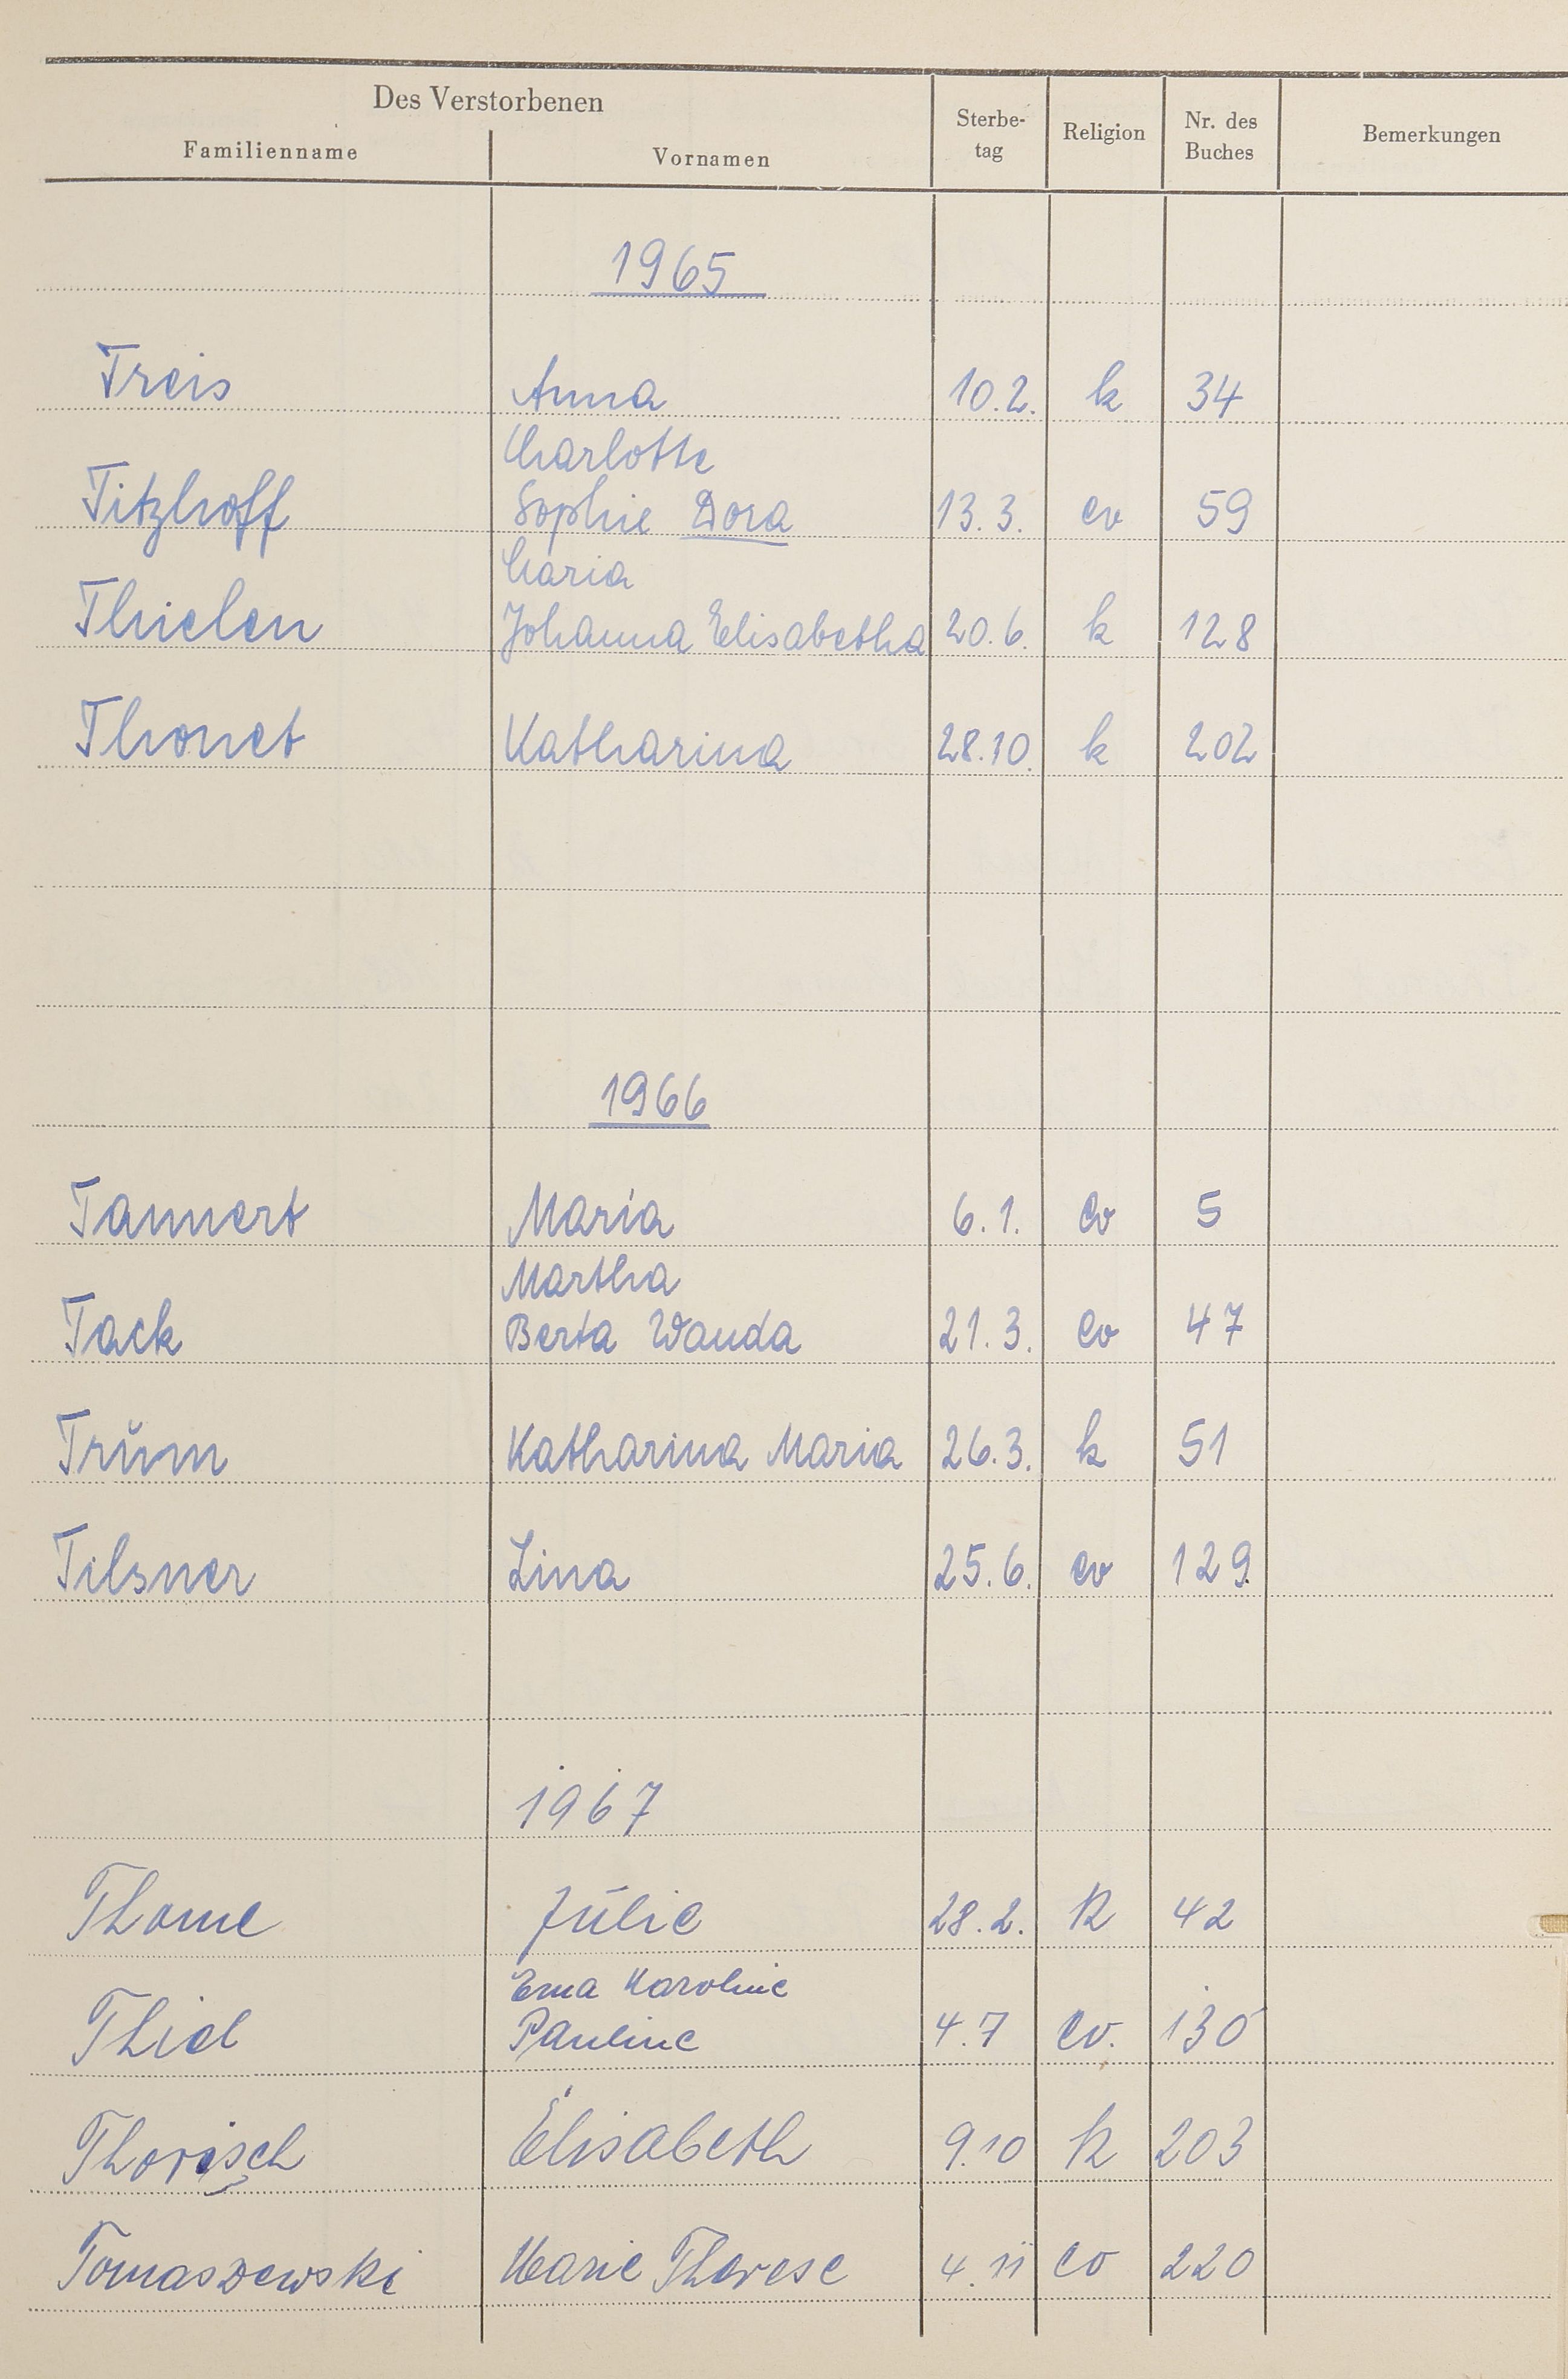 Des Verstorbenen
Familienname Vornamen Sterbe-tag Religion Nr. des Buches Bemerkungen
1965
Treis Anna 10.2. k 34
Charlotte
Titzhoff Sophie Dora 13.3. ev 59
Maria
Thielen Johanna Elisabetha 20.6. k 128
Thonet Katharina 28.10. k 202
1966
Tannert Maria 6.1. ev 5
Martha
Tack Berta Wanda 21.3. ev 47
Trŭm Katharina Maria 26.3. k 51
Tilsner Lina 25.6. ev 129.
1967
Thome Júlie 28.2. k 42
Erna Karoline
Thiel Pauline 4.7 ev. 130
Thorisch Elisabeth 9.10 k 203
Tomaszewski Marie Therese 4.11 ev 220